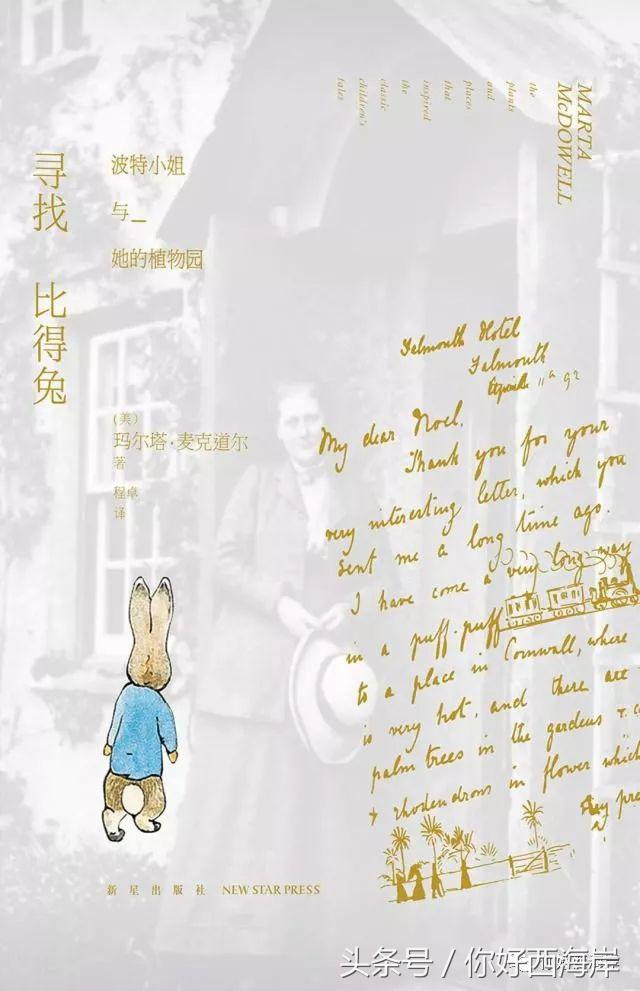 寻找 比得兔
波特小姐
与_
她的植物园
(美)
玛尔塔·麦克道尔
著
程卓
译
MARTA
McDOWELL
the
plants
and
places
that
inspired
the
classic
children's
tales
Falmouth Hotel
Falmouth
My dear Noel,
Thank you for your
very interesting letter, which you
sent me a long time ago.
I have come a very long way
in a puff-puff
to a place in Cornwall, where it
is very hot, and there are
palm trees in the gardens & c
& rhodendrons in flower which
新星出版社 NEW STAR PRESS
头条号 / 你好西海岸